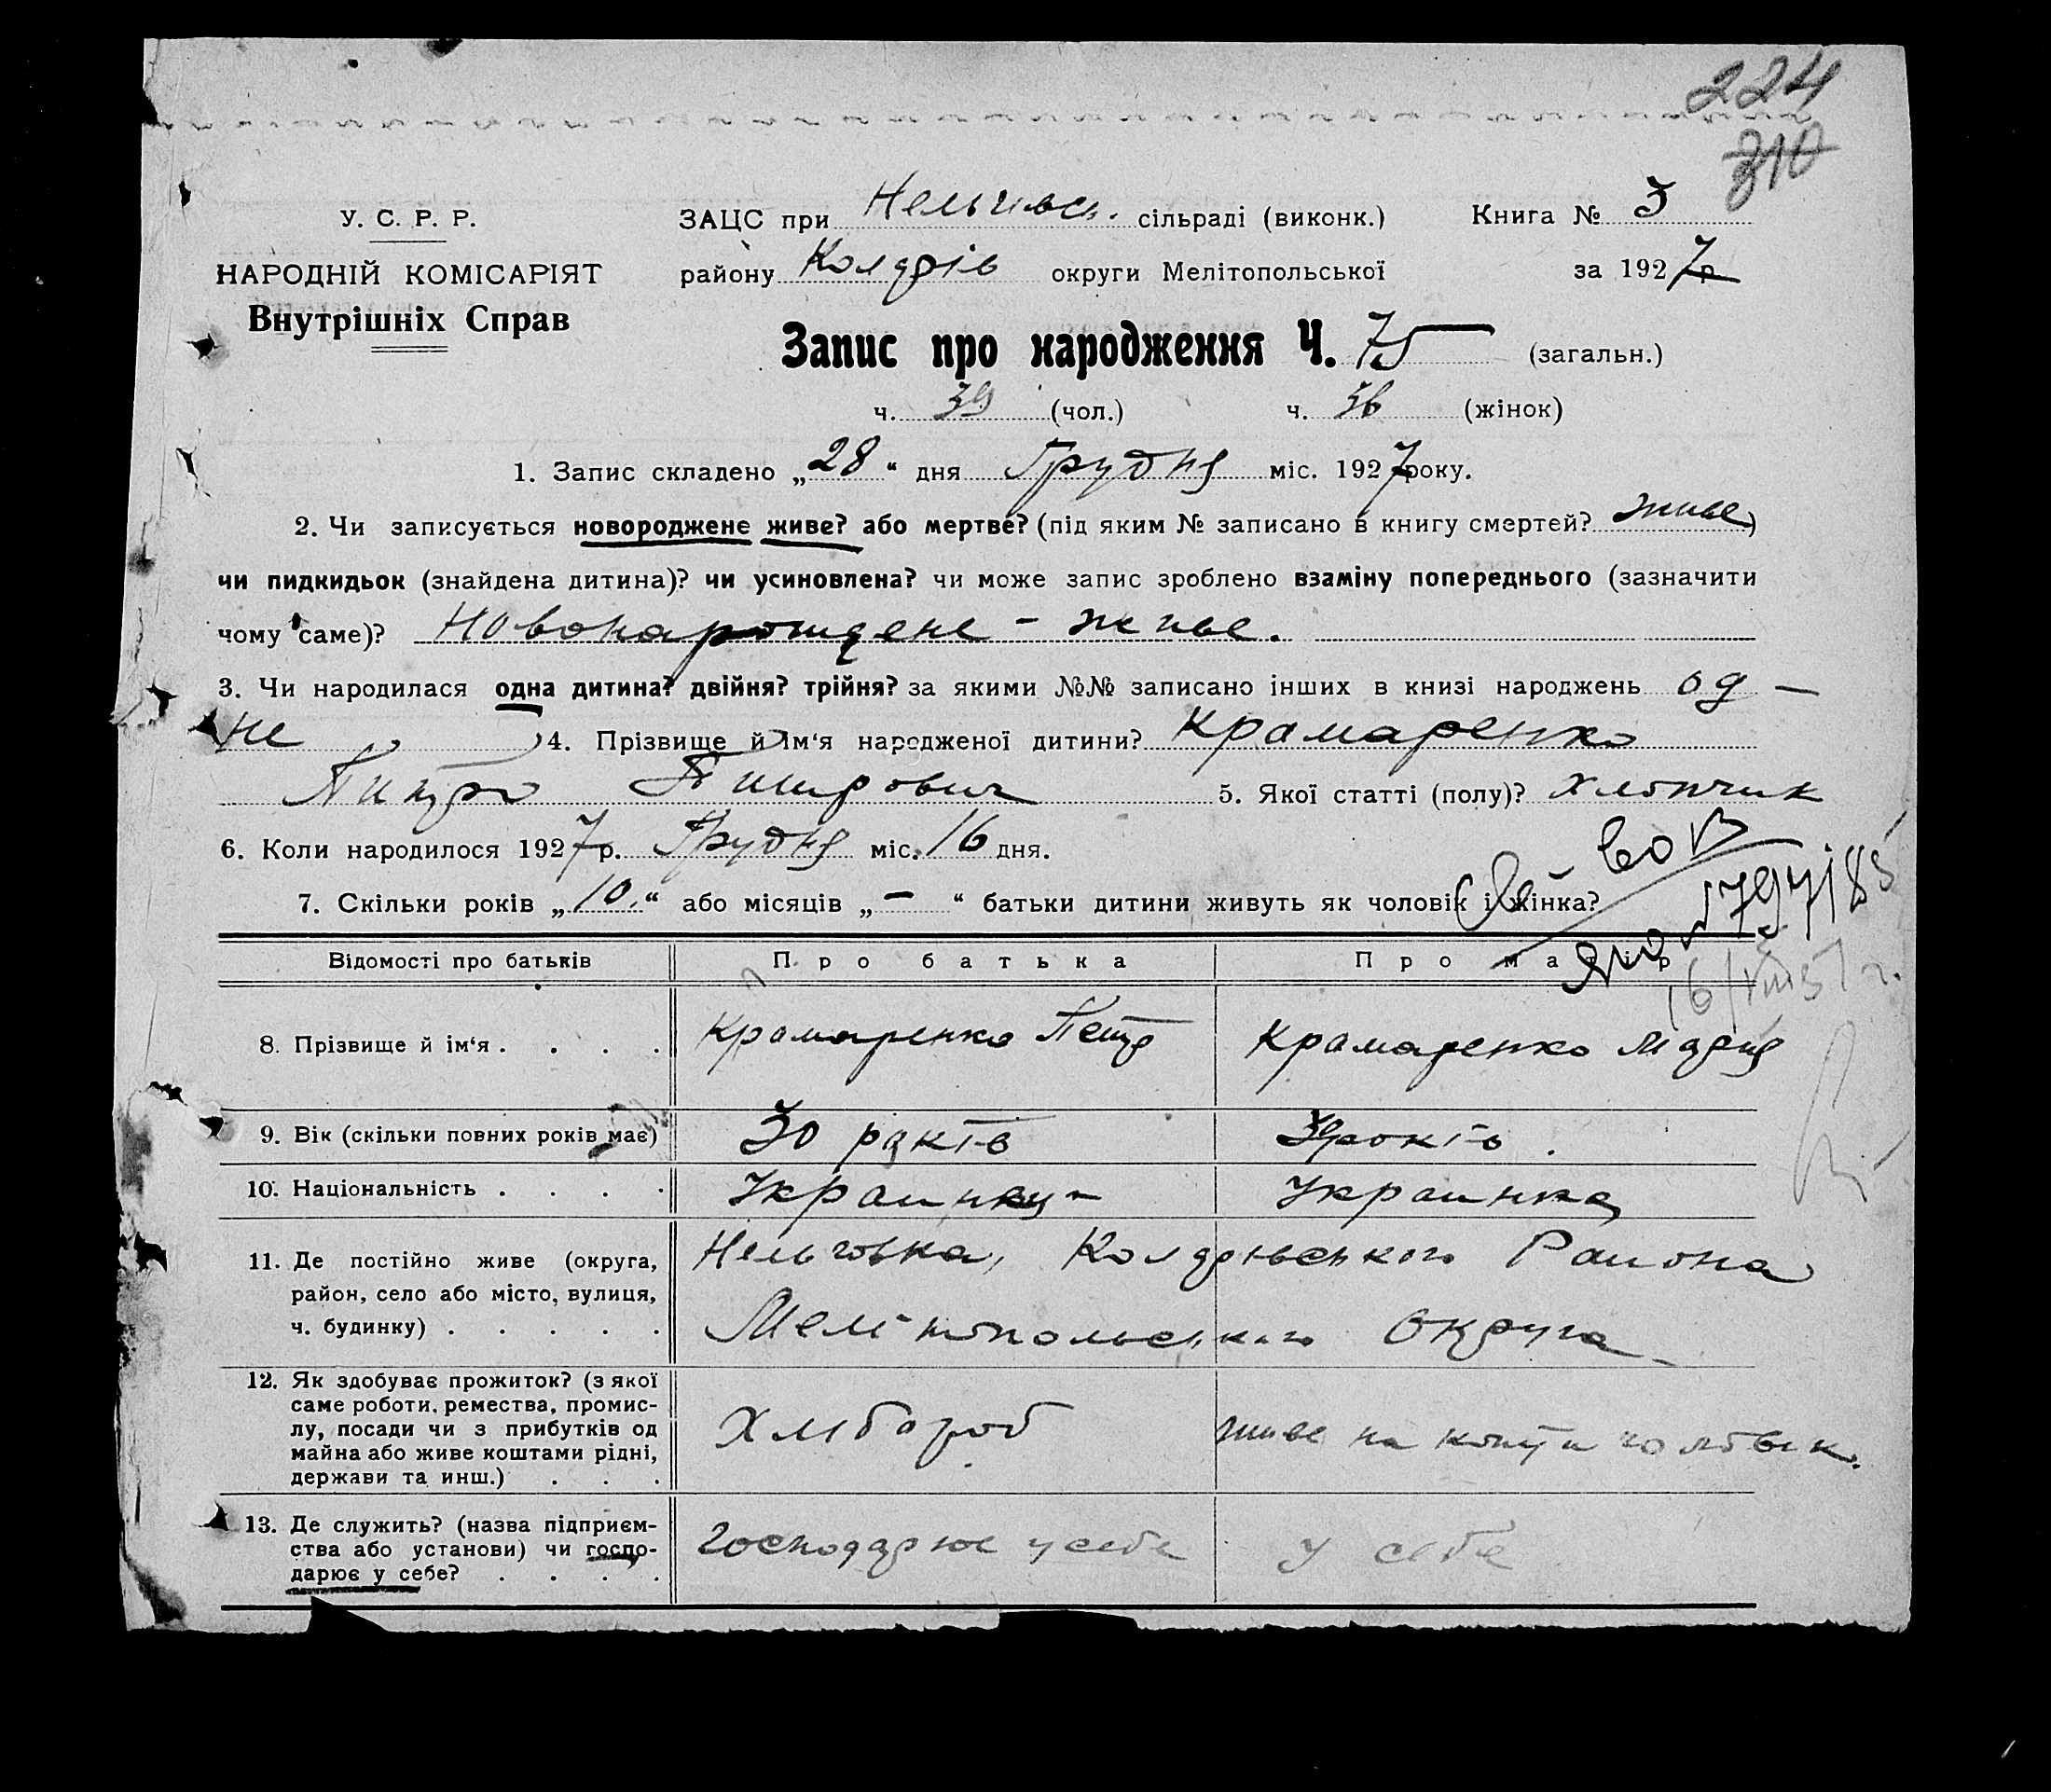 224
310
У. С. Р. Р.
НАРОДНІЙ КОМІСАРІЯТ
Внутрішніх Справ
ЗАЦС при Нельгівсь. сільраді (виконк.) Книга № 3
району Колдрів округи Мелітопольської за 1927 р
Запис про народження Ч. 75 (загальн.)
ч. 39 (чол.) ч. 36 (жінок)
1. Запис складено „28“ дня Грудня міс. 1927 року.
2. Чи записується новороджене живе? або мертве? (під яким № записано в книгу смертей? живе)
чи пидкидьок (знайдена дитина)? чи усиновлена? чи може запис зроблено взаміну попереднього (зазначити
чому саме)? Новонарождене - живе.
3. Чи народилася одна дитина? двійня? трійня? за якими №№ записано інших в книзі народжень од –
не 4. Прізвище й ім'я народженої дитини? Крамаренко
Питро Питрович 5. Якої статті (полу)? Хлопчик
6. Коли народилося 1927 р. Грудня міс. 16 дня.
7. Скільки років „10.“ або місяців „–“ батьки дитини живуть як чоловік і жінка?
Відомості про батьків Про батька Про матір
8. Прізвище й ім'я . . . . Крамаренко Петр Крамаренко Мария
9. Вік (скільки повних років має) 30 років років.
10. Національність . . . . Украинец Украинка
11. Де постійно живе (округа, Нельговка, Колдрівського Района
район, село або місто, вулиця,
ч. будинку) . . . . . Мелітопольського Округа
12. Як здобуває прожиток? (з якої
саме роботи, ремества, промис-
лу, посади чи з прибутків од Хлібороб живе на кошти чоловік.
майна або живе коштами рідні,
держави та инш.) . . .
13. Де служить? (назва підприєм-
ства або установи) чи госпо- господарює у себе у себе
дарює у себе? . . . .